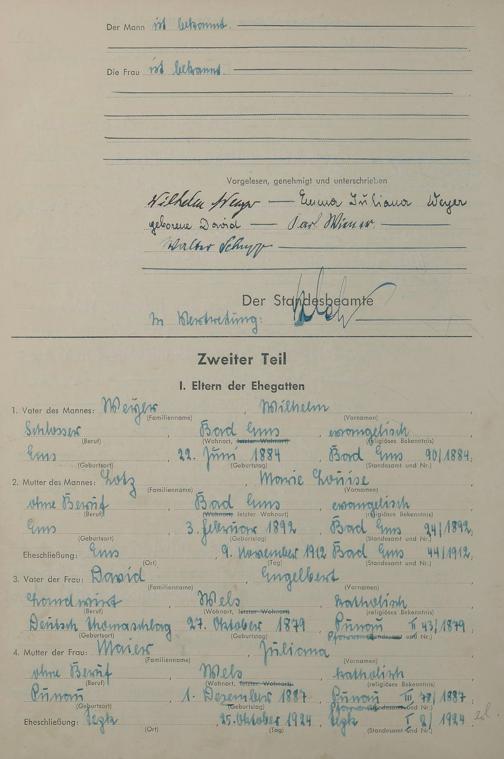 Der Mann ist bekannt.
Die Frau ist bekannt.
Vorgelesen, genehmigt und unterschrieben
Wilhelm Weyer — Emma Juliana Weyer
geborene David — Karl Wiener
Walter Schupp
Der Standesbeamte
In Vertretung:
Zweiter Teil
I. Eltern der Ehegatten
1. Vater des Mannes: Weyer, Wilhelm
(Familienname) (Vornamen)
Schlosser, Bad Ems, evangelisch
(Beruf) (Wohnort, letzter Wohnort) (religiöses Bekenntnis)
Ems, 22. Juni 1884, Bad Ems 90/1884,
(Geburtsort) (Geburtstag) (Standesamt und Nr.)
2. Mutter des Mannes: Lotz, Marie Louise
(Familienname) (Vornamen)
ohne Beruf, Bad Ems, evangelisch
(Beruf) (Wohnort, letzter Wohnort) (religiöses Bekenntnis)
Ems, 3. Februar 1892, Bad Ems 24/1892,
(Geburtsort) (Geburtstag) (Standesamt und Nr.)
Eheschließung: Ems, 9. November 1912 Bad Ems 44/1912,
(Ort) (Tag) (Standesamt und Nr.)
3. Vater der Frau: David, Engelbert
(Familienname) (Vornamen)
Landwirt, Wels, katholisch
(Beruf) (Wohnort, letzter Wohnort) (religiöses Bekenntnis)
Deutsch Thomaschlag 27. Oktober 1879, Punau II 43/1879,
(Geburtsort) (Geburtstag) (Standesamt und Nr.)
4. Mutter der Frau: Maier, Juliana
(Familienname) (Vornamen)
ohne Beruf, Wels, katholisch
(Beruf) (Wohnort, letzter Wohnort) (religiöses Bekenntnis)
Punau, 1. Dezember 1887, Punau III 78/1887,
(Geburtsort) (Geburtstag) (Standesamt und Nr.)
Eheschließung: 25. Oktober 1924 I 8/1924
(Ort) (Tag) (Standesamt und Nr.)